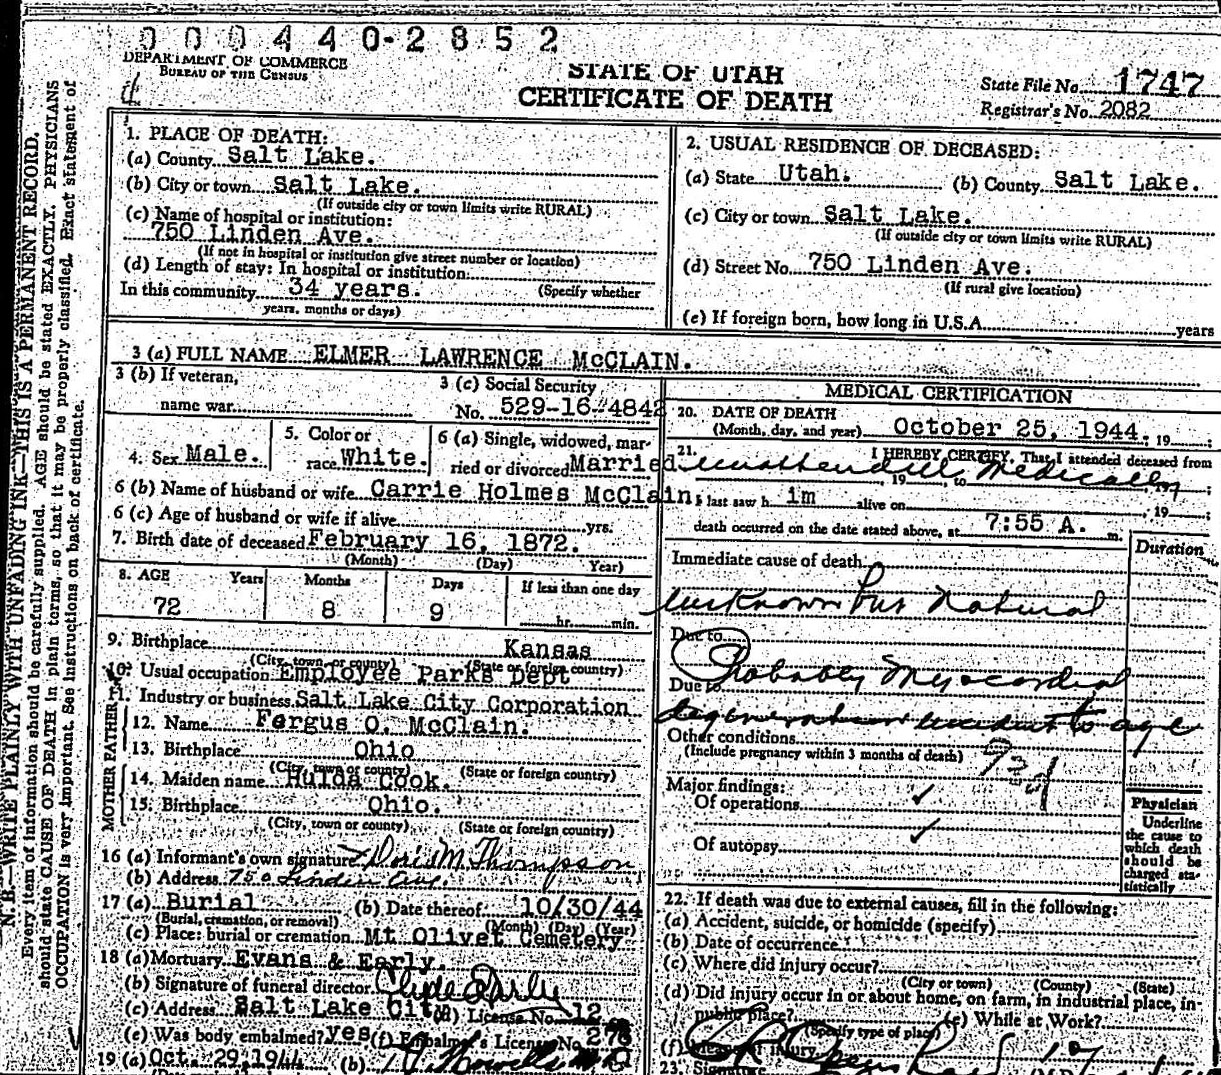 000440-2852
DEPARTMENT OF COMMERCE
BUREAU OF THE CENSUS
STATE OF UTAH
CERTIFICATE OF DEATH
State File No. 1747
Registrar's No. 2082
N. B.—WRITE PLAINLY WITH UNFADING INK—THIS IS A PERMANENT RECORD.
Every item of information should be carefully supplied. AGE should be stated EXACTLY. PHYSICIANS
should state CAUSE OF DEATH in plain terms, so that it may be properly classified. Exact statement of
OCCUPATION is very important. See instructions on back of certificate.
1. PLACE OF DEATH:
(a) County Salt Lake.
(b) City or town Salt Lake.
(If outside city or town limits write RURAL)
(c) Name of hospital or institution:
750 Linden Ave.
(If not in hospital or institution give street number or location)
(d) Length of stay: In hospital or institution:
In this community 34 years. (Specify whether
years, months or days)
2. USUAL RESIDENCE OF DECEASED:
(a) State Utah. (b) County Salt Lake.
(c) City or town Salt Lake.
(If outside city or town limits write RURAL)
(d) Street No. 750 Linden Ave.
(If rural give location)
(e) If foreign born, how long in U.S.A. years
3 (a) FULL NAME ELMER LAWRENCE McCLAIN.
3 (b) If veteran,
name war
3 (c) Social Security
No. 529-16-4842
4. Sex Male.
5. Color or
race White.
6 (a) Single, widowed, mar-
ried or divorced Married
6 (b) Name of husband or wife Carrie Holmes McClain.
6 (c) Age of husband or wife if alive yrs.
7. Birth date of deceased February 16, 1872.
(Month) (Day) Year)
8. AGE Years Months Days If less than one day
72 8 9 hr. min.
9. Birthplace Kansas
(City, town, or county) (State or foreign country)
10. Usual occupation Employee Parks Dept
11. Industry or business Salt Lake City Corporation
FATHER
12. Name Fergus O. McClain.
13. Birthplace Ohio
(City, town or county) (State or foreign country)
MOTHER
14. Maiden name Hulda Cook.
15. Birthplace Ohio.
(City, town or county) (State or foreign country)
16 (a) Informant's own signature Doris M. Thompson
(b) Address 750 Linden Ave.
17 (a) Burial (b) Date thereof 10/30/44
(Burial, cremation, or removal) (Month) (Day) (Year)
(c) Place: burial or cremation Mt Olivet Cemetery
18 (a) Mortuary Evans & Early.
(b) Signature of funeral director Clyde Early
(c) Address Salt Lake City (d) License No. 12
(e) Was body embalmed? yes (f) Embalmer's License No.
19 (a) Oct. 29, 1944 (b)
MEDICAL CERTIFICATION
20. DATE OF DEATH
(Month, day, and year) October 25, 1944. 19
21. I HEREBY CERTIFY, That I attended deceased from
unattended Medically
19 , to , 19
I last saw him alive on , 19 ;
death occurred on the date stated above, at 7:55 A. m.
Duration
Immediate cause of death
Unknown but Natural
Due to
Probably Myocardial
Due to
degeneration incident to age
Other conditions
(Include pregnancy within 3 months of death)
Major findings:
Of operations ✓
Of autopsy ✓
Physician
Underline
the cause to
which death
should be
charged sta-
tistically
22. If death was due to external causes, fill in the following:
(a) Accident, suicide, or homicide (specify)
(b) Date of occurrence
(c) Where did injury occur?
(City or town) (County) (State)
(d) Did injury occur in or about home, on farm, in industrial place, in
public place? (e) While at Work?
(Specify type of place)
(f) injury
23. Signature